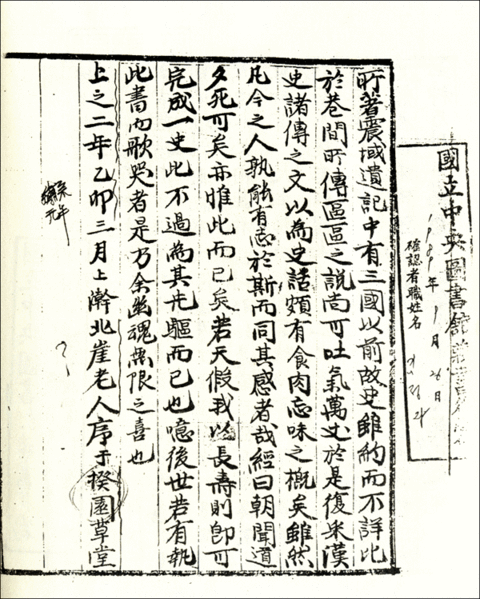 國立中央圖書館藏書
1989年 1月 26日
確認者職姓名
所著震域遺記中有三國以前故史雖約而不詳比
於巷間所傳區區之說尚可吐氣萬丈於是復采漢
史諸傳之文以為史話頗有食肉忘味之概矣雖然
凡今之人孰能有志於斯而同其感者哉經曰朝聞道
夕死可矣亦惟此而已矣若天假我以長壽則卽可
完成一史此不過為其先驅而已也噫後世若有執
此書而歌哭者是乃余幽魂無限之喜也
上之二年乙卯三月上澣北崖老人序于揆園草堂